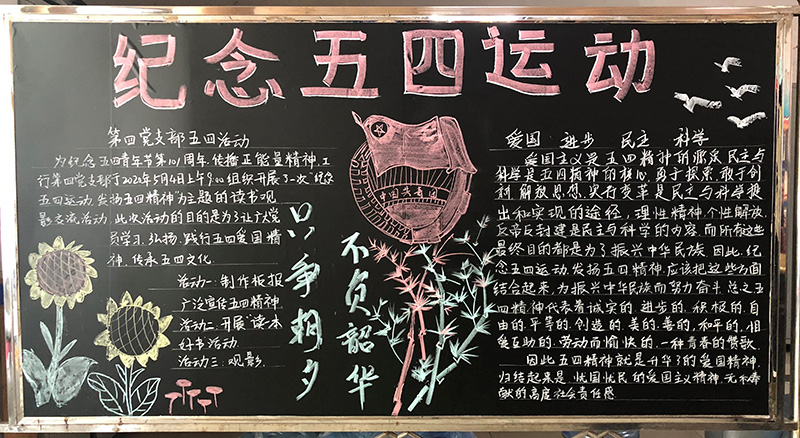 纪念五四运动
第四党支部五四活动
为纪念五四青年节第101周年,传播正能量精神,工
行第四党支部于2020年5月4日上午9:00组织开展了一次“纪念
五四运动,发扬五四精神”为主题的读书观
影交流活动,此次活动的目的是为了让广大党
员学习、弘扬、践行五四爱国精
神,传承五四文化.
活动一:制作板报
广泛宣传五四精神
活动二:开展“读本
好书活动.
活动三:观影.
只争朝夕
不负韶华
中国共青团
爱国 进步 民主 科学
爱国主义是五四精神的源泉,民主与
科学是五四精神的核心,勇于探索、敢于创
新、解放思想、实行变革是民主与科学提
出和实现的途径,理性精神、个性解放、
反帝反封建是民主与科学的内容,而所有这些
最终目的都是为了振兴中华民族.因此,纪
念五四运动,发扬五四精神,应该把这些方面
结合起来,为振兴中华民族而努力奋斗.总之五
四精神代表着诚实的、进步的、积极的、自
由的、平等的、创造的、美的、善的、和平的、相
爱互助的、劳动而愉快的,一种青春的赞歌.
因此五四精神就是升华了的爱国精神,
归结起来是:忧国忧民的爱国主义精神、无私奉
献的高度社会责任感